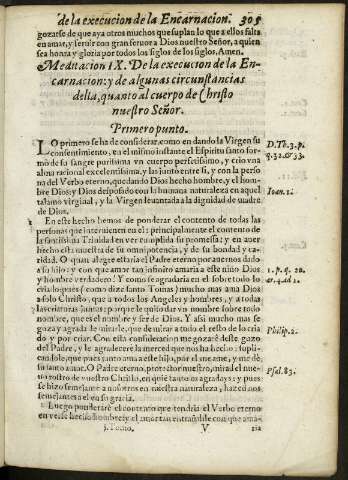 de la execucion de la Encarnacion. 305
gozarse de que aya otros muchos que suplan lo que a ellos falta
en amar, y seruir con gran feruor a Dios nuestro Señor, a quien
sea honra y gloria por todos los siglos de los siglos. Amen.
Meditacion IX. De la execucion de la En-
carnacion: y de algunas circunstancias
della, quanto al cuerpo de Christo
nuestro Señor.
Primero punto.
LO primero se ha de considerar, como en dando la Virgen su
consentimiento, en el mismo instante el Espiritu santo for-
mò de su sangre purissima vn cuerpo perfetissimo, y criò vna
alma racional excelentissima, y las junto entre si, y con la perso
na del Verbo eterno, quedando Dios hecho hombre, y el hom-
bre Dios y Dios desposado con la humana naturaleza en aquel
talamo virginal, y la Virgen leuantada a la dignidad de madre
de Dios.
D. Th. 3. p.
q. 32. & 33.
Ioan. 1.
En este hecho hemos de ponderar el contento de todas las
personas que interuienen en el: principalmente el contento de
la santissima Trinidad en ver cumplida su promessa: y en auer
hecho esta muestra de su omnipotencia, y de su bondad y ca-
ridad. O quan alegre estaria el Padre eterno por auernos dado
a su hijo: y con que amor tan infinito amaria a este niño Dios
y hombre verdadero! Y como se agradaria en el sobre todo lo
criado: pues (como dize santo Tomas) mucho mas ama Dios
a solo Christo, que a todos los Angeles y hombres, y a todas
las criaturas juntas: porque le quiso dar vn nombre sobre todo
nombre, que es el nombre y ser de Dios. Y assi mucho mas se
goza y agrada de mirarle, que de mirar a todo el resto de lo cria
do y por criar. Con esta consideracion me gozarè deste gozo
del Padre, y le agradecerè la merced que nos ha hecho: supli-
candole, que pues tanto ama a este hijo, por el me ame, y me dè
su santo amor. O Padre eterno, protector nuestro, mirad el rue-
stro rostro de vuestro Christo, en quien tanto os agradays: y pues
se hizo semejante a nosotros en nuestra naturaleza, hazednos
semejantes a el en su gracia.
1. p. q. 20.
ar. 4. ad 1.
Philip. 2.
Psal. 83.
Luego ponderarè el contento que tendria el Verbo eterno
en verse hecho hombre, y el amor tan entrañable con que ama-
1. Tomo. V ria